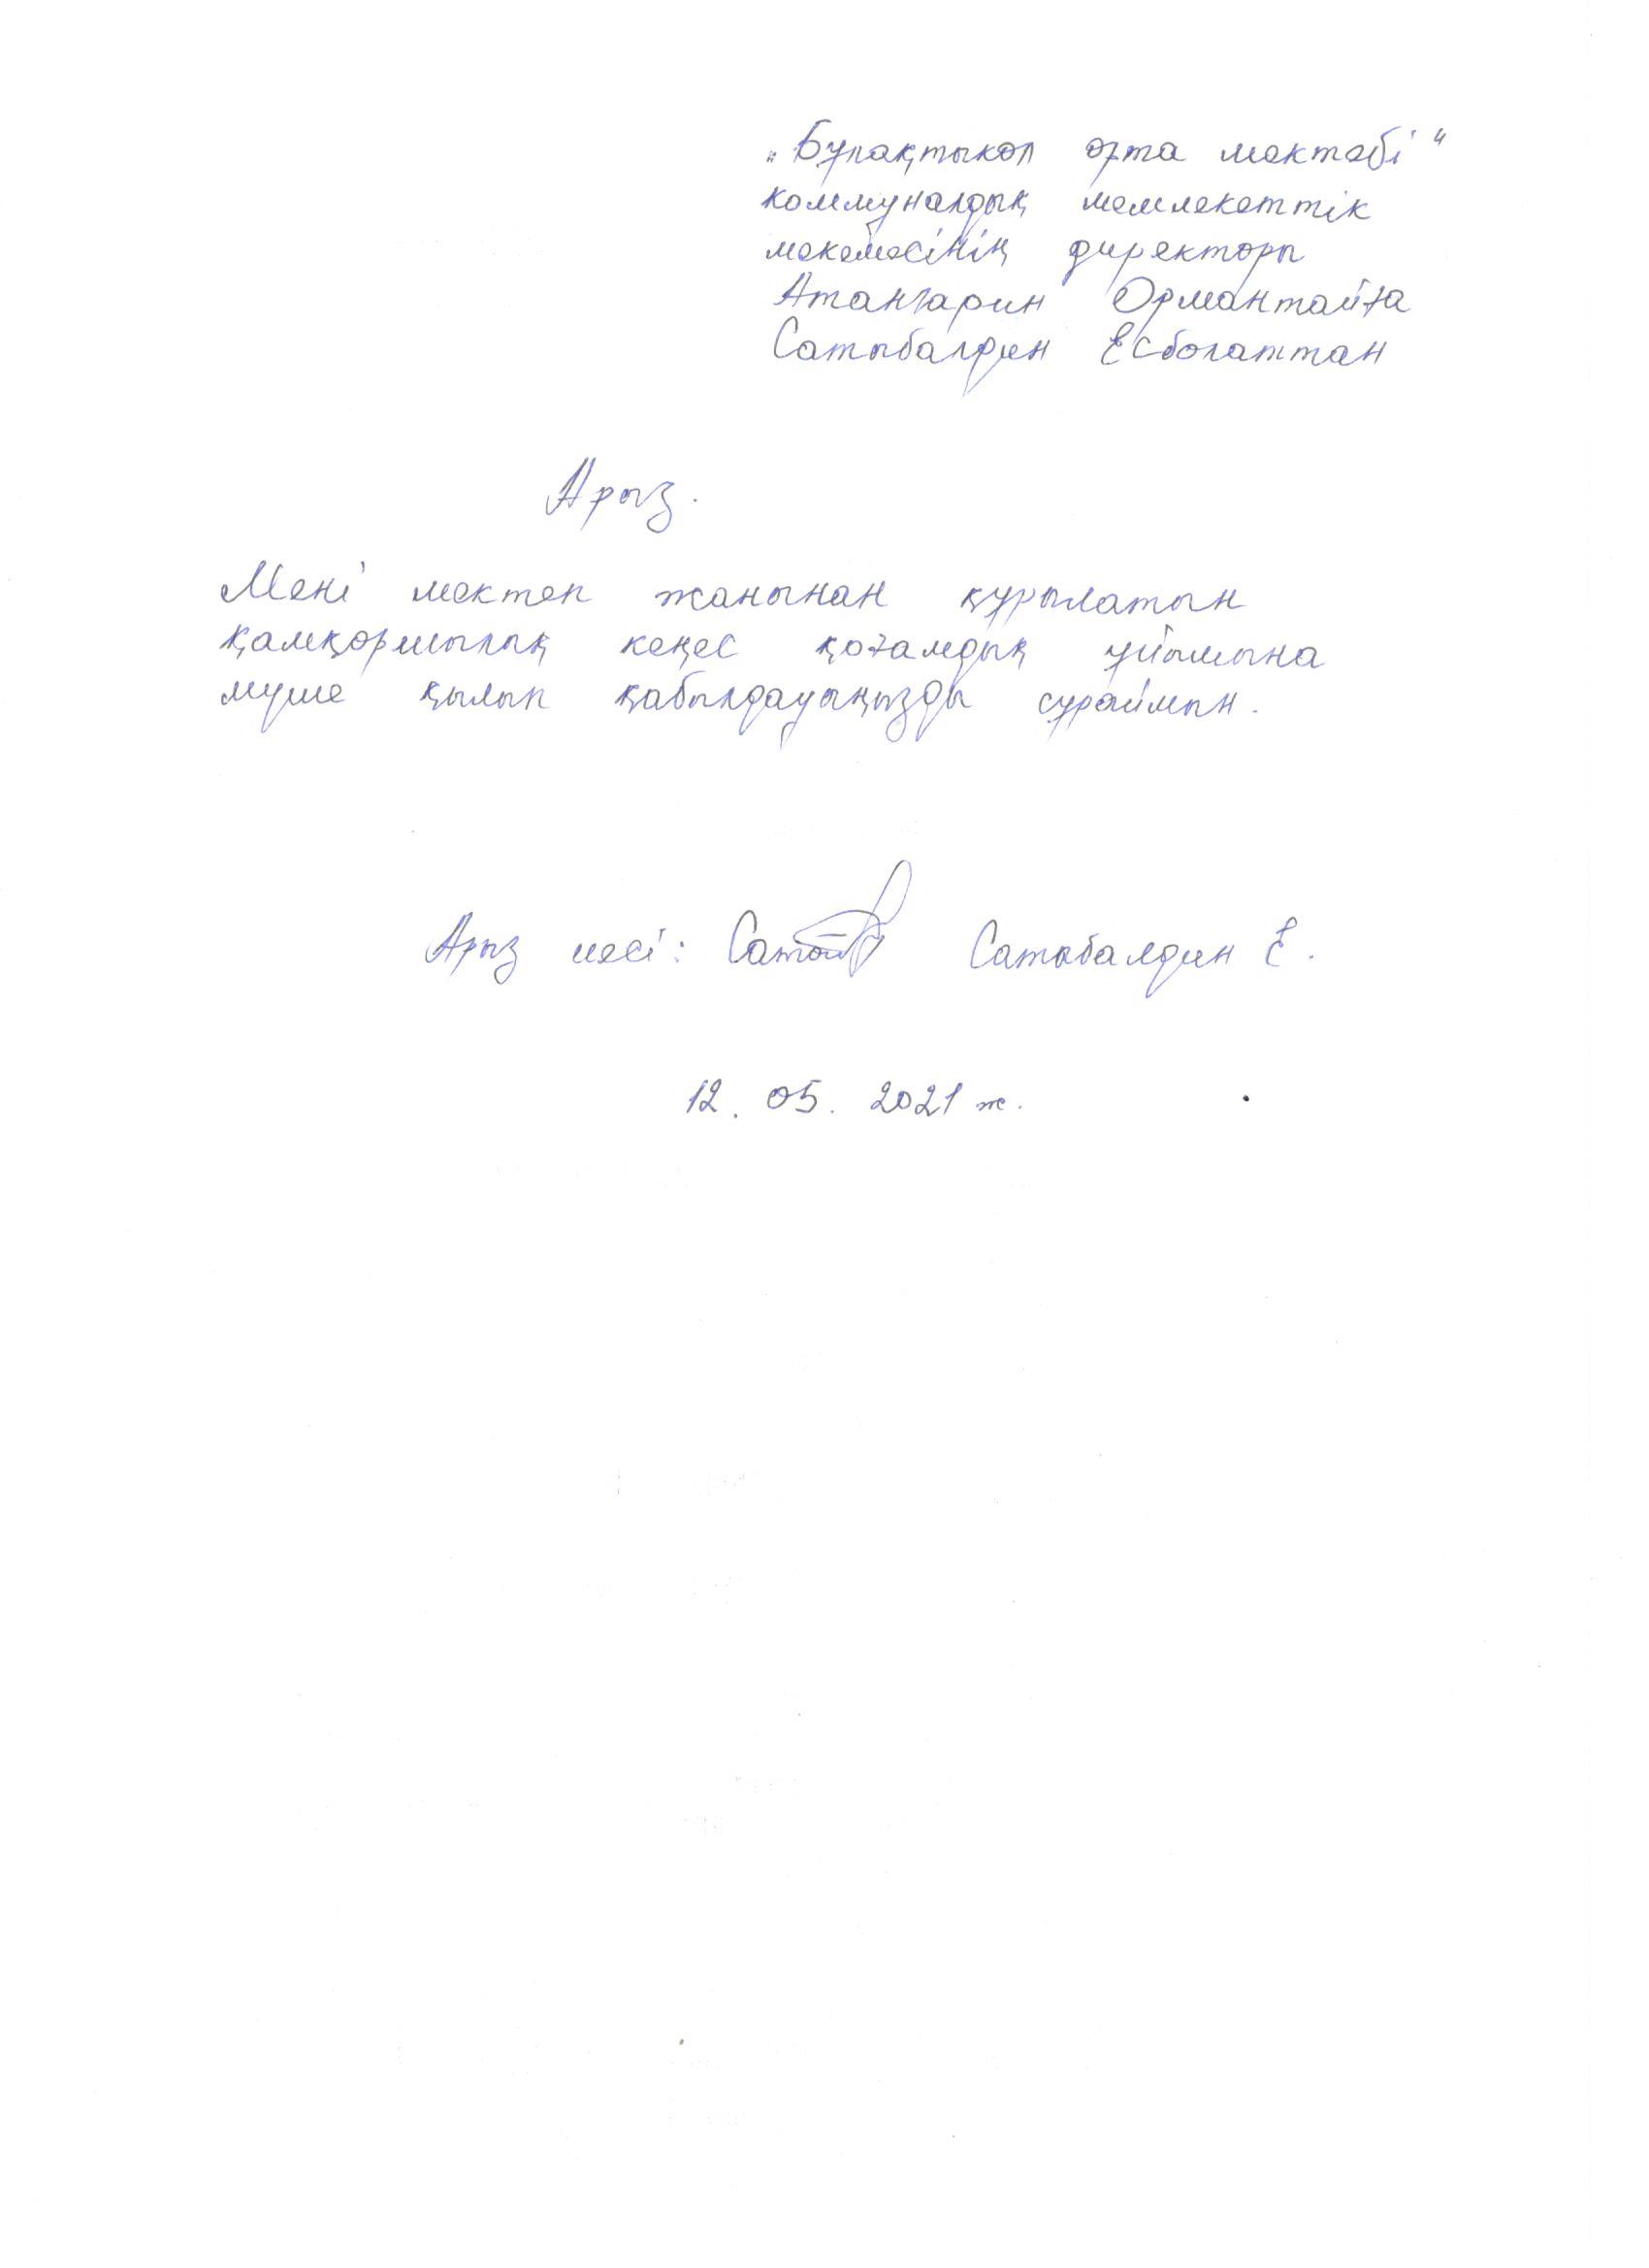 „Бұлақтыкөл орта мектебі“
коммуналдық мемлекеттік
мекемесінің директоры
Атанғарин Ормантайға
Сатыбалдин Есболаттан
Арыз.
Мені мектеп жанынан құрылатын
қамқоршылық кеңес қоғамдық ұйымына
мүше қылып қабылдауыңызды сұраймын.
Арыз иесі: Сатыб Сатыбалдин Е.
12. 05. 2021 ж.